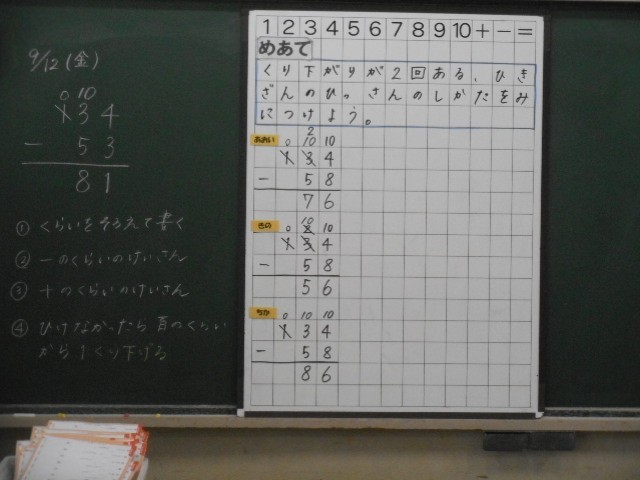 9/12(金)
0 10
134
- 53
81
① くらいをそろえて書く
② 一のくらいのけいさん
③ 十のくらいのけいさん
④ ひけなかったら百のくらい
から1くり下げる
1 2 3 4 5 6 7 8 9 10 + - =
めあて
くり下がりが2回ある、ひき
ざんのひっさんのしかたをみ
につけよう。
2
あおい 0 10 10
134
- 58
76
10
きの 0 2 10
134
- 58
56
ちか 0 10 10
134
- 58
86